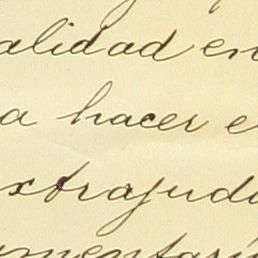 alidad en
a hacer e
xtrajudi
mentari